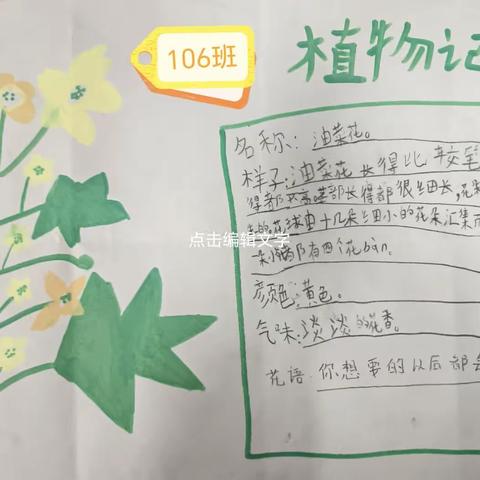 106班
植物记
名称:油菜花。
样子:油菜花长得比较笔
得都很细长,花
的花球由十几朵细小的花朵汇集而
点击编辑文字
朵小花都有四个花bàn。
颜色:黄色。
气味:淡淡的花香。
花语:你想要的以后都会